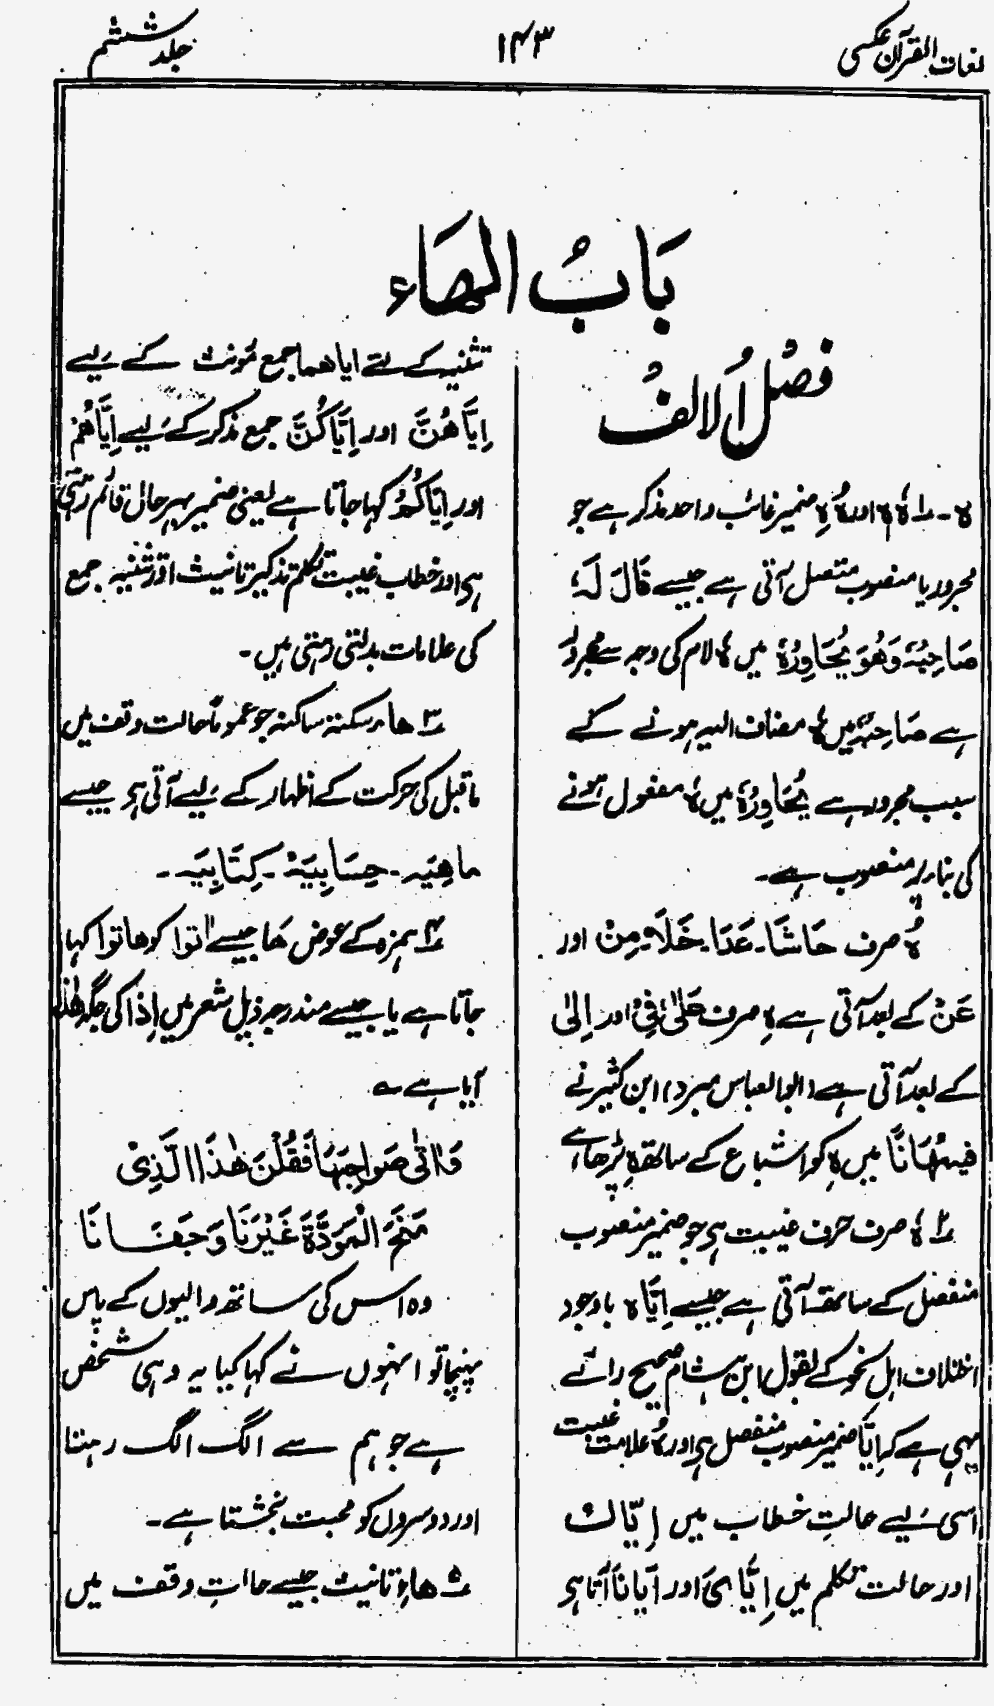 لغات القرآن عکسی
۱۴۳
جلد ششم
بَابُ الهَاء
فصلُ الالفُ
ہ ۔ ۱ؔ ہٗ ہٖ اور ہُ ہِ ضمیر غائب واحد مذکر ہے جو
مجرور یا منصوب متصل آتی ہے جیسے قَالَ لَہٗ
صَاحِبُہٗ وَھُوَ یُحَاوِرُہٗ میں ہٗ لام کی وجہ سے مجرور
ہے صَاحِبُہٗ میں ہٗ مضاف الیہ ہونے کے
سبب مجرور ہے یُحَاوِرُہٗ میں ہٗ مفعول ہونے
کی بناء پر منصوب ہے۔
ہُ صرف حَاشَا۔ عَدَا۔ خَلَا۔ مِنْ اور
عَنْ کے بعد آتی ہے ہِ صرف عَلیٰ، فِیْ اور اِلیٰ
کے بعد آتی ہے (ابوالعباس مبرد) ابن کثیر نے
فِیْہٖ مُہَانًا میں ہٖ کو اشباع کے ساتھ پڑھا ہے
۲ؔ ہٗ صرف حرف غیبت ہی جو ضمیر منصوب
منفصل کے ساتھ آتی ہے جیسے اِیَّاہ باوجود
اختلاف اہل نحو کے بقول ابن ہشام صحیح رائے
یہی ہے کہ اِیَّا ضمیر منصوب منفصل ہی اور ہُ علامت غیبت
اسی لیے حالتِ خطاب میں اِیَّاكَ
اور حالت تکلم میں اِیَّایَ اور اِیَّانَا آتا ہی
تثنیہ کے لئے ایاھما جمع مؤنث کے لیے
اِیَّاھُنَّ اور اِیَّاکُنَّ جمع مذکر کے لیے اِیَّاھُمْ
اور اِیَّاکُمْ کہا جاتا ہے یعنی ضمیر بہر حال قائم رہتی
ہی اور خطاب غیبت تکلم تذکیر تانیث اور تثنیہ جمع
کی علامات بدلتی رہتی ہیں۔
۳ؔ ھاء سکتہ ساکنہ جو عموماً حالت وقف میں
ماقبل کی حرکت کے اظہار کے لیے آتی ہی جیسے
ماھِیَہ۔ حِسَابِیَہْ۔ کِتَابِیَہ۔
۴ؔ ہمزہ کے عوض ھَا جیسے اتوا کو ھاتوا کہا
جاتا ہے یا جیسے مندرجہ ذیل شعر میں اِذَا کی جگہ ھٰذا
آیا ہے ؎
وَاَتٰی صَواحِبَہَا فَقُلْنَ ھٰذَا الَّذِیْ
مَنَحَ الْمَوَدَّۃَ غَیْرَنَا وَجَفَانَا
وہ اس کی ساتھ والیوں کے پاس
پہنچا تو انہوں نے کہا کیا یہ وہی شخص
ہے جو ہم سے الگ الگ رہتا
اور دوسروں کو محبت بخشتا ہے۔
۵ؔ ھاءِ تانیث جیسے حالتِ وقف میں